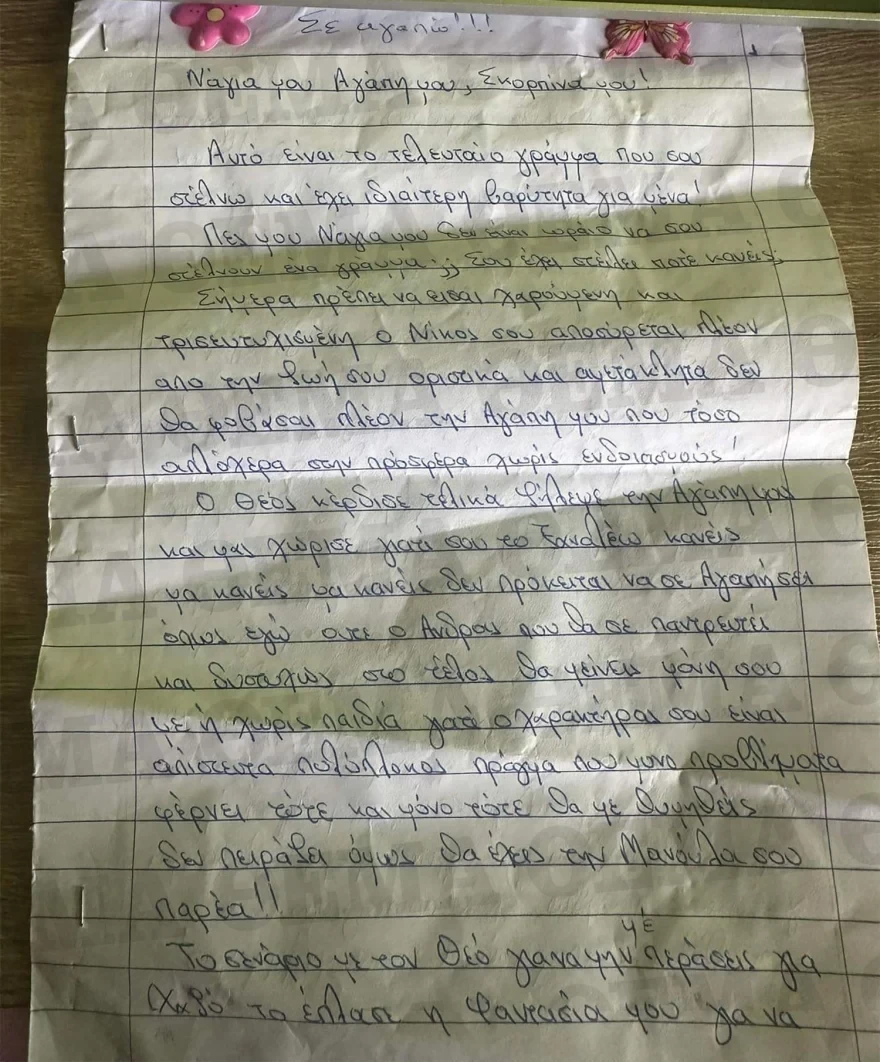 Σε αγαπώ!!!
Νάγια μου Αγάπη μου, Σκορπίνα μου!
Αυτό είναι το τελευταίο γράμμα που σου
στέλνω και έχει ιδιαίτερη βαρύτητα για μένα!
Πες μου Νάγια μου δεν είναι ωραίο να σου
στέλνουν ένα γράμμα;;; Σου έχει στείλει ποτέ κανείς;
Σήμερα πρέπει να εισαι χαρούμενη και
τρισευτυχισμένη ο Νίκος σου αποσύρεται πλέον
απο την ζωή σου οριστικά και αμετάκλητα δεν
θα φοβάσαι πλέον την Αγάπη μου που τόσο
απλόχερα στην πρόσφερα χωρίς ενδοιασμούς!
Ο Θεός κέρδισε τελικά ζήλεψε την Αγάπη μου
και μας χώρισε γιατί σου το ξαναλέω κανείς
μα κανείς μα κανείς δεν πρόκειται να σε Αγαπήσει
όπως εγώ ουτε ο Άνδρας που θα σε παντρευτεί
και δυστυχώς στο τέλος θα μείνεις μόνη σου
με ή χωρίς παιδιά γιατί ο χαρακτήρας σου είναι
απίστευτα πολύπλοκος πράγμα που μονο προβλήματα
φέρνει τότε και μόνο τότε θα με θυμηθείς
δεν πειράζει όμως θα έχεις την Μανούλα σου
παρέα!!
Το σενάριο με τον Θεό για να μην με περάσεις για
Χαζό το έπλασε η Φαντασία μου για να
ΘΕΜΑ